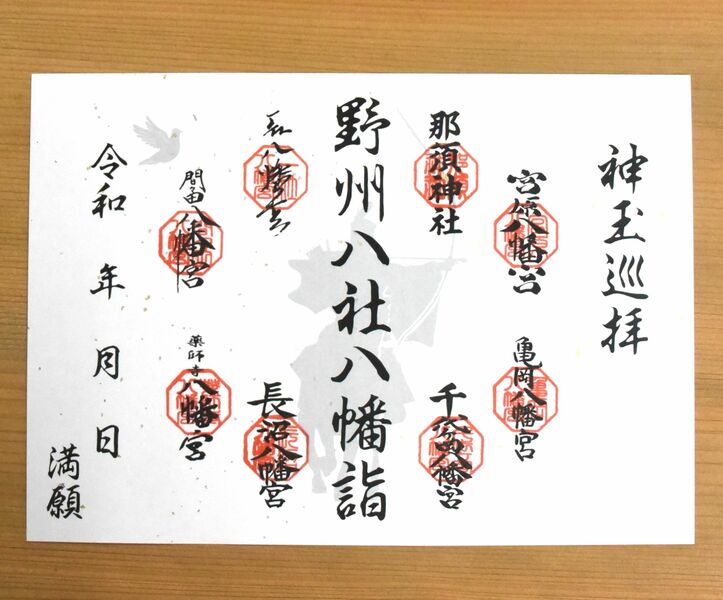 神玉巡拝
宮原八幡宮
亀岡八幡宮
那須神社
野州八社八幡詣
長沼八幡宮
間々田八幡宮
薬師寺八幡宮
令和 年 月 日
満願